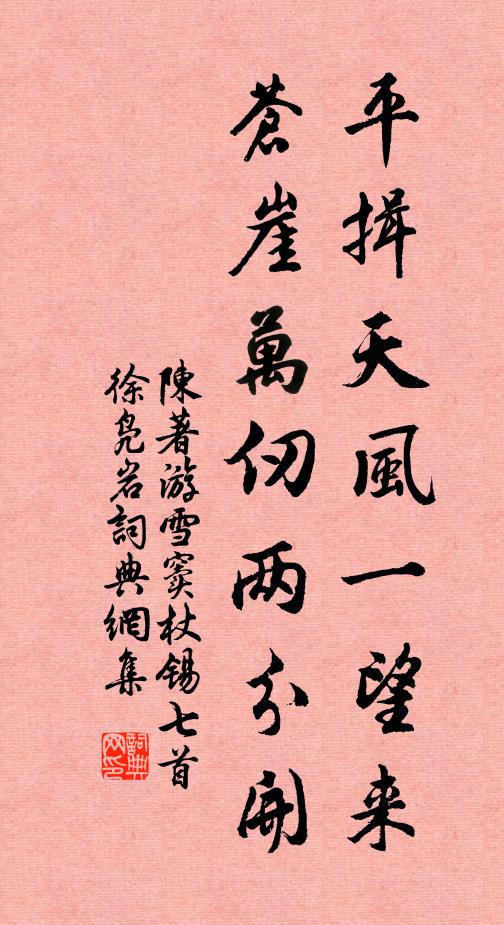 平揖天風一望来
蒼崖萬仞两分開
陳著游雪竇杖錫七首
徐凫岩詞典網集
詞典网印